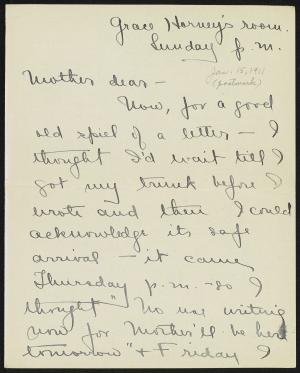 Grace Harvey's room.
Sunday p.m.
Jan. 15, 1911
(postmark)
Mother dear -
Now, for a good
old spiel of a letter - I
thought I'd wait till I
got my trunk before I
wrote and then I could
acknowledge its safe
arrival - it came
Thursday p.m. - so I
thought "No use writing
now for Mother'll be here
tomorrow" + Friday I